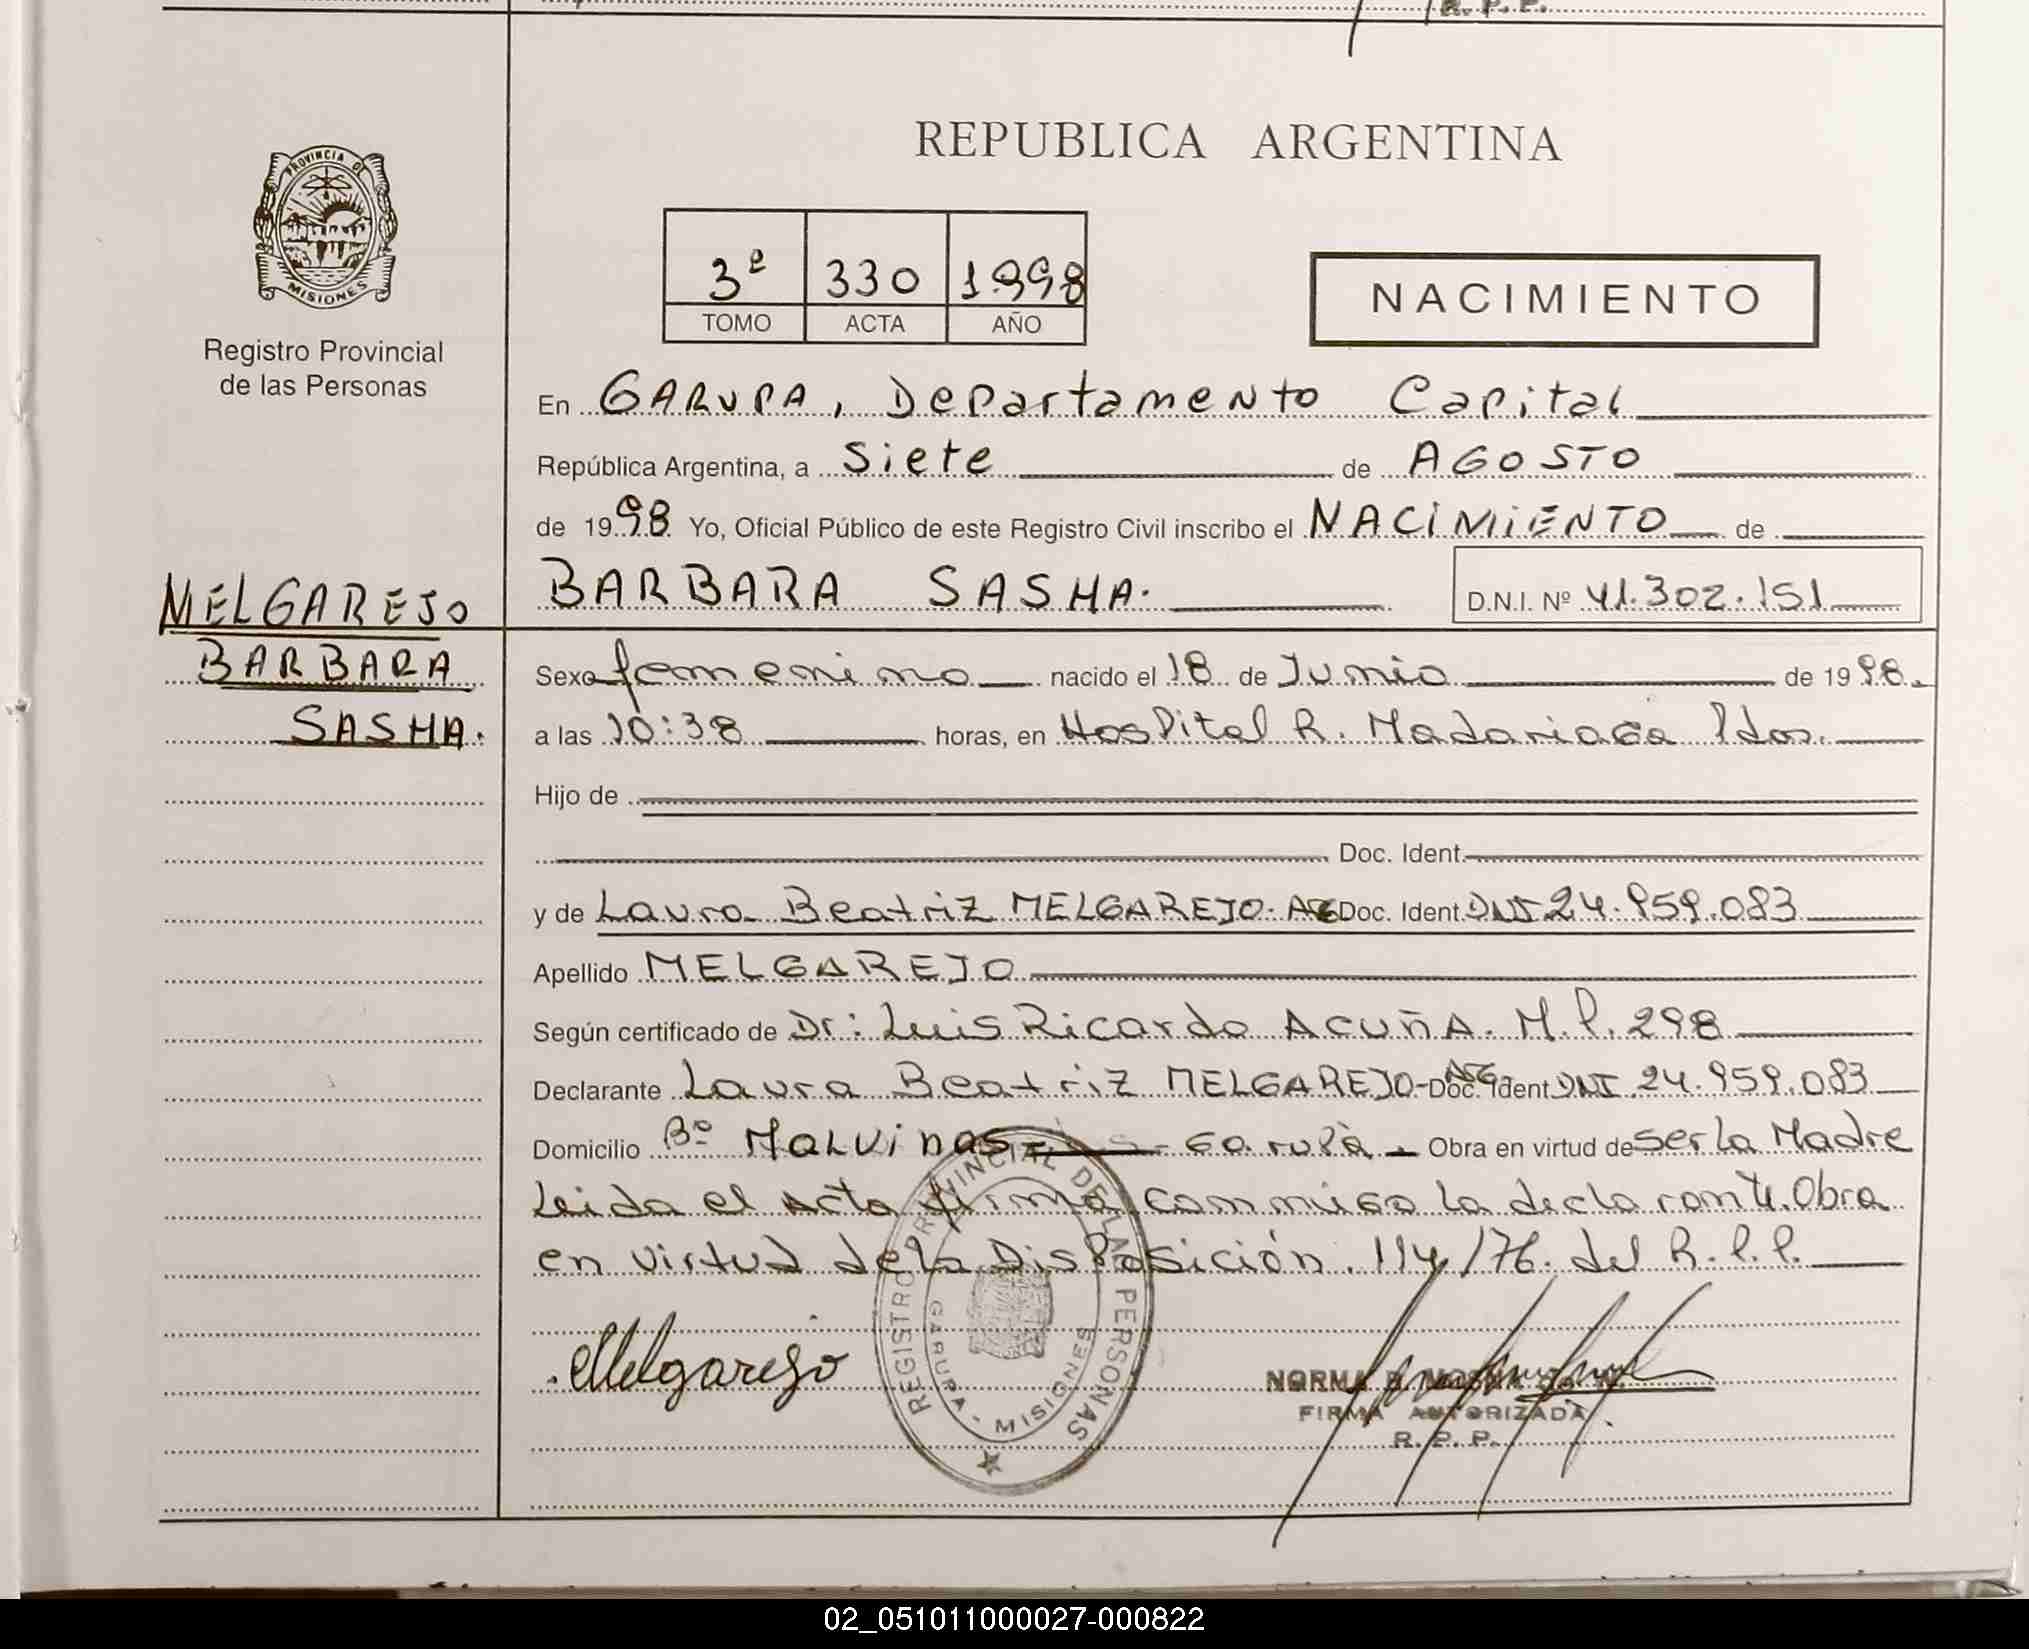 R. P. P.
PROVINCIA DE
MISIONES
Registro Provincial
de las Personas
REPUBLICA ARGENTINA
3º 330 1.998
TOMO ACTA AÑO
NACIMIENTO
En GARUPA, Departamento Capital
República Argentina, a Siete de AGOSTO
de 1998 Yo, Oficial Público de este Registro Civil inscribo el NACIMIENTO de
BARBARA SASHA.
D.N.I. Nº 41.302.151
MELGAREJO
BARBARA
SASHA.
Sexo femenino nacido el 18 de Junio de 1998.
a las 10:38 horas, en Hospital R. Madariaga Pdas.
Hijo de
Doc. Ident.
y de Laura Beatriz MELGAREJO- AG Doc. Ident. DNI 24.959.083
Apellido MELGAREJO
Según certificado de Dr: Luis Ricardo ACUÑA. M.P. 298
Declarante Laura Beatriz MELGAREJO- AG Doc. Ident DNI 24.959.083
Domicilio Bº Malvinas - Garupà. Obra en virtud de ser la Madre
Leida el acta firma conmigo la declarante. Obra
en virtud de la Disposición 114/76. del R.P.P.
Melgarejo
REGISTRO PROVINCIAL DE LAS PERSONAS
GARUPA - MISIONES
NORMA B.
FIRMA AUTORIZADA
R. P. P.
02_051011000027-000822